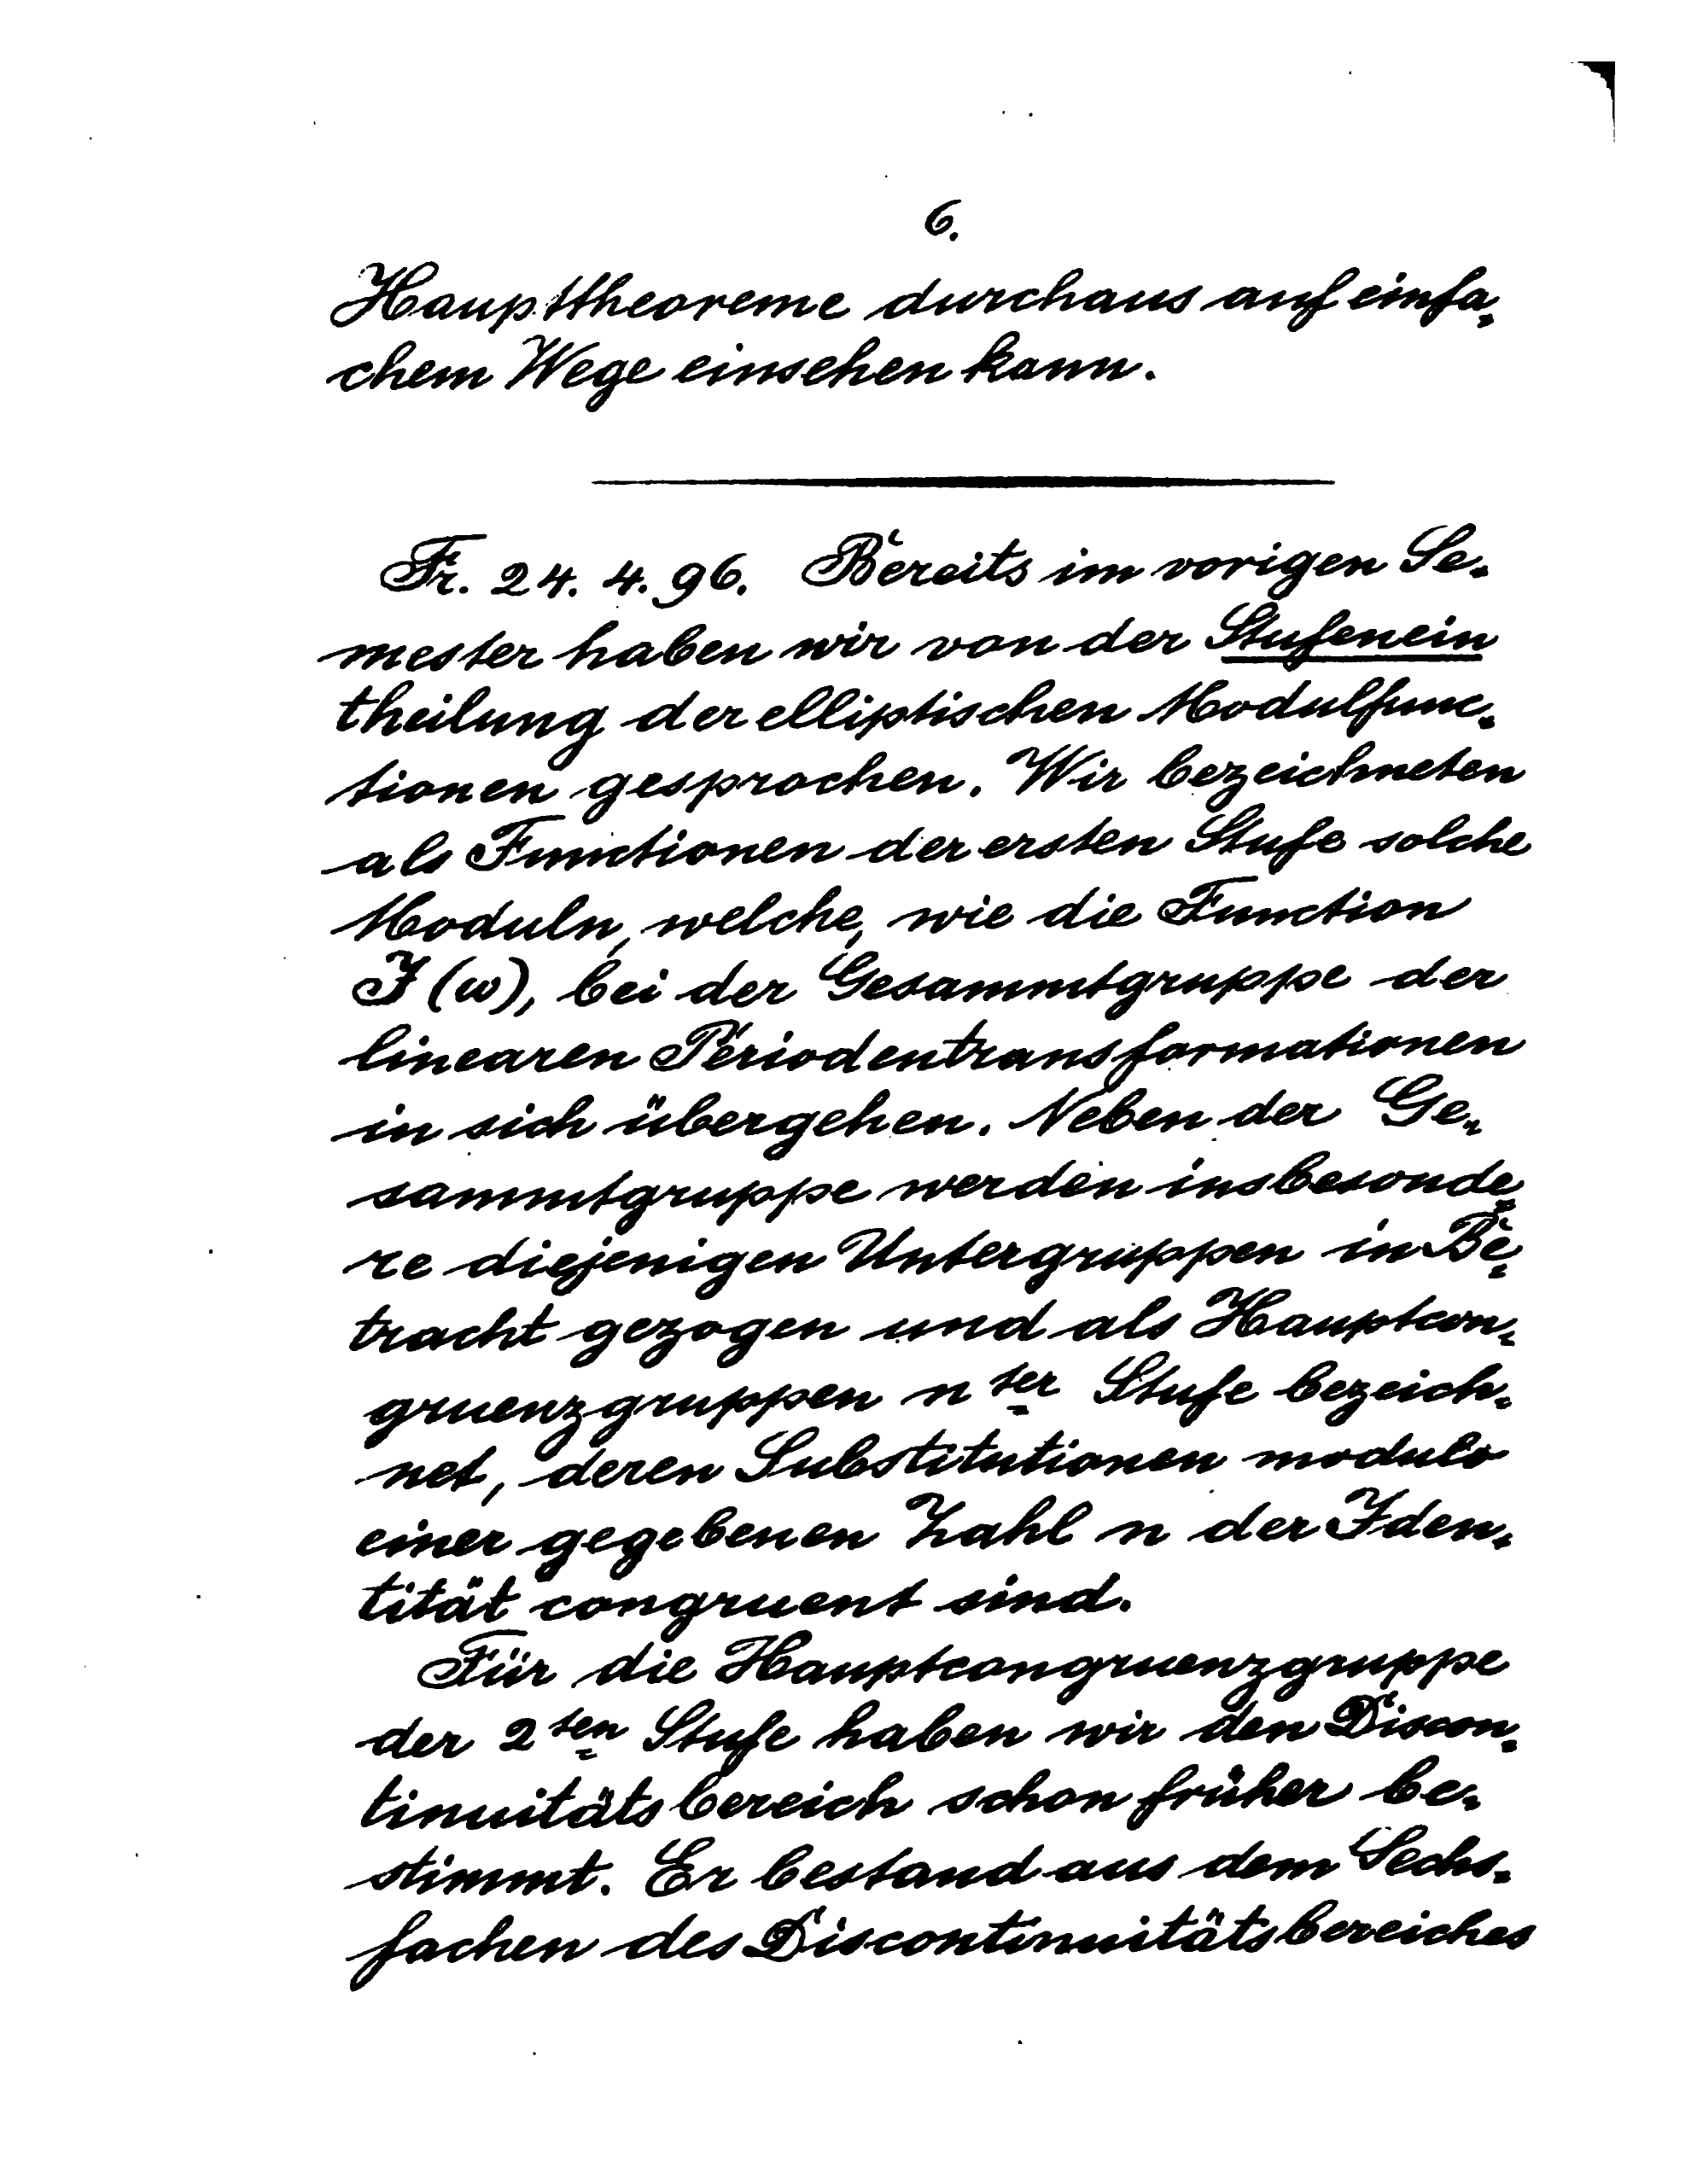 6.
Haupttheoreme durchaus auf einfa-
chem Wege einsehen kann.
Fr. 24. 4. 96. Bereits im vorigen Se-
mester haben wir von der Stufenein
theilung der elliptischen Modulfunc-
tionen gesprochen. Wir bezeichneten
als Functionen der ersten Stufe solche
Moduln, welche, wie die Function
J (ω), bei der Gesammtgruppe der
linearen Periodentransformationen
in sich übergehen. Neben der Ge-
sammtgruppe werden insbesonde-
re diejenigen Untergruppen in Be-
tracht gezogen und als Hauptcon-
gruenzgruppen n ter Stufe bezeich-
net, deren Substitutionen modulo
einer gegebenen Zahl n der Iden-
tität congruent sind.
Für die Hauptcongruenzgruppe
der 2 ten Stufe haben wir den Discon-
tinuitätsbereich schon früher be-
stimmt. Er bestand aus dem Sechs-
fachen des Discontinuitätsbereiches